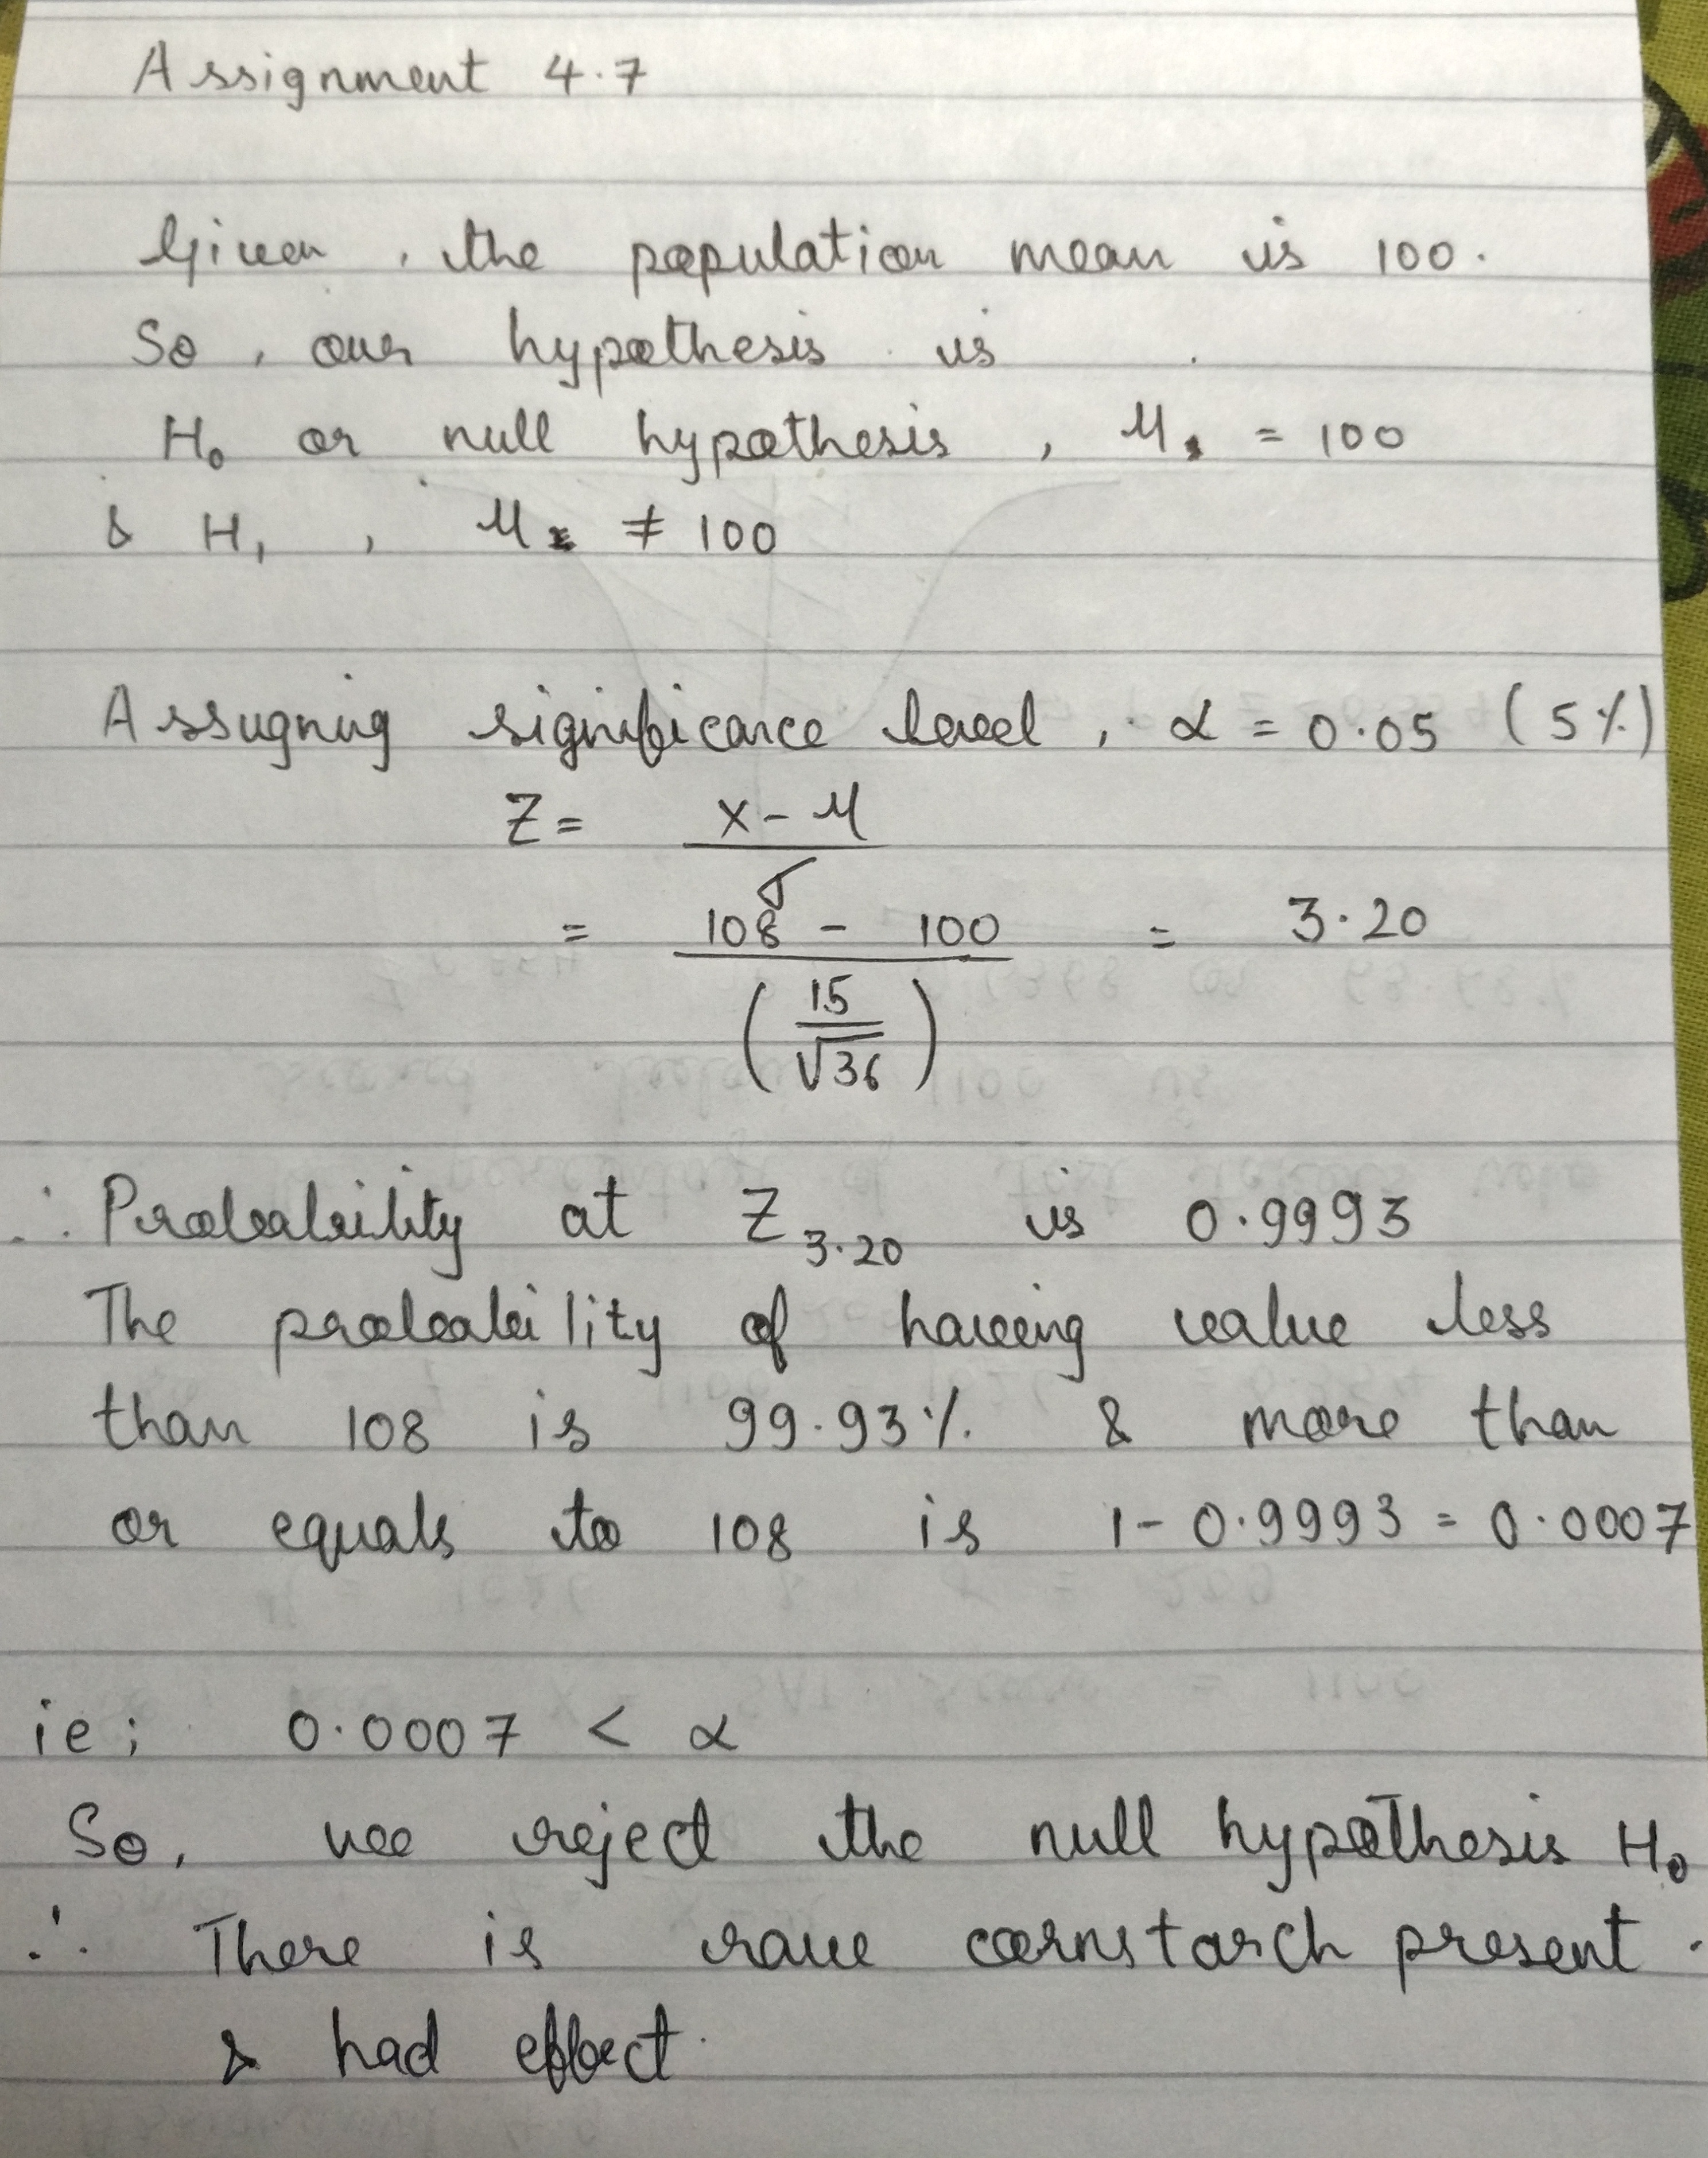 Assignment 4.7
Given, the population mean is 100.
So, our hypothesis is
H₀ or null hypothesis, μ = 100
& H₁, μ ≠ 100
Assugnug significance level, α = 0.05 (5%)
Z = x - μ
σ
= 108 - 100 = 3.20
(15
√36)
∴ Probability at Z 3.20 is 0.9993
The probability of having value less
than 108 is 99.93% & more than
or equals to 108 is 1 - 0.9993 = 0.0007
ie; 0.0007 < α
So, we reject the null hypothesis H₀
∴ There is raw cornstarch present.
& had effect.